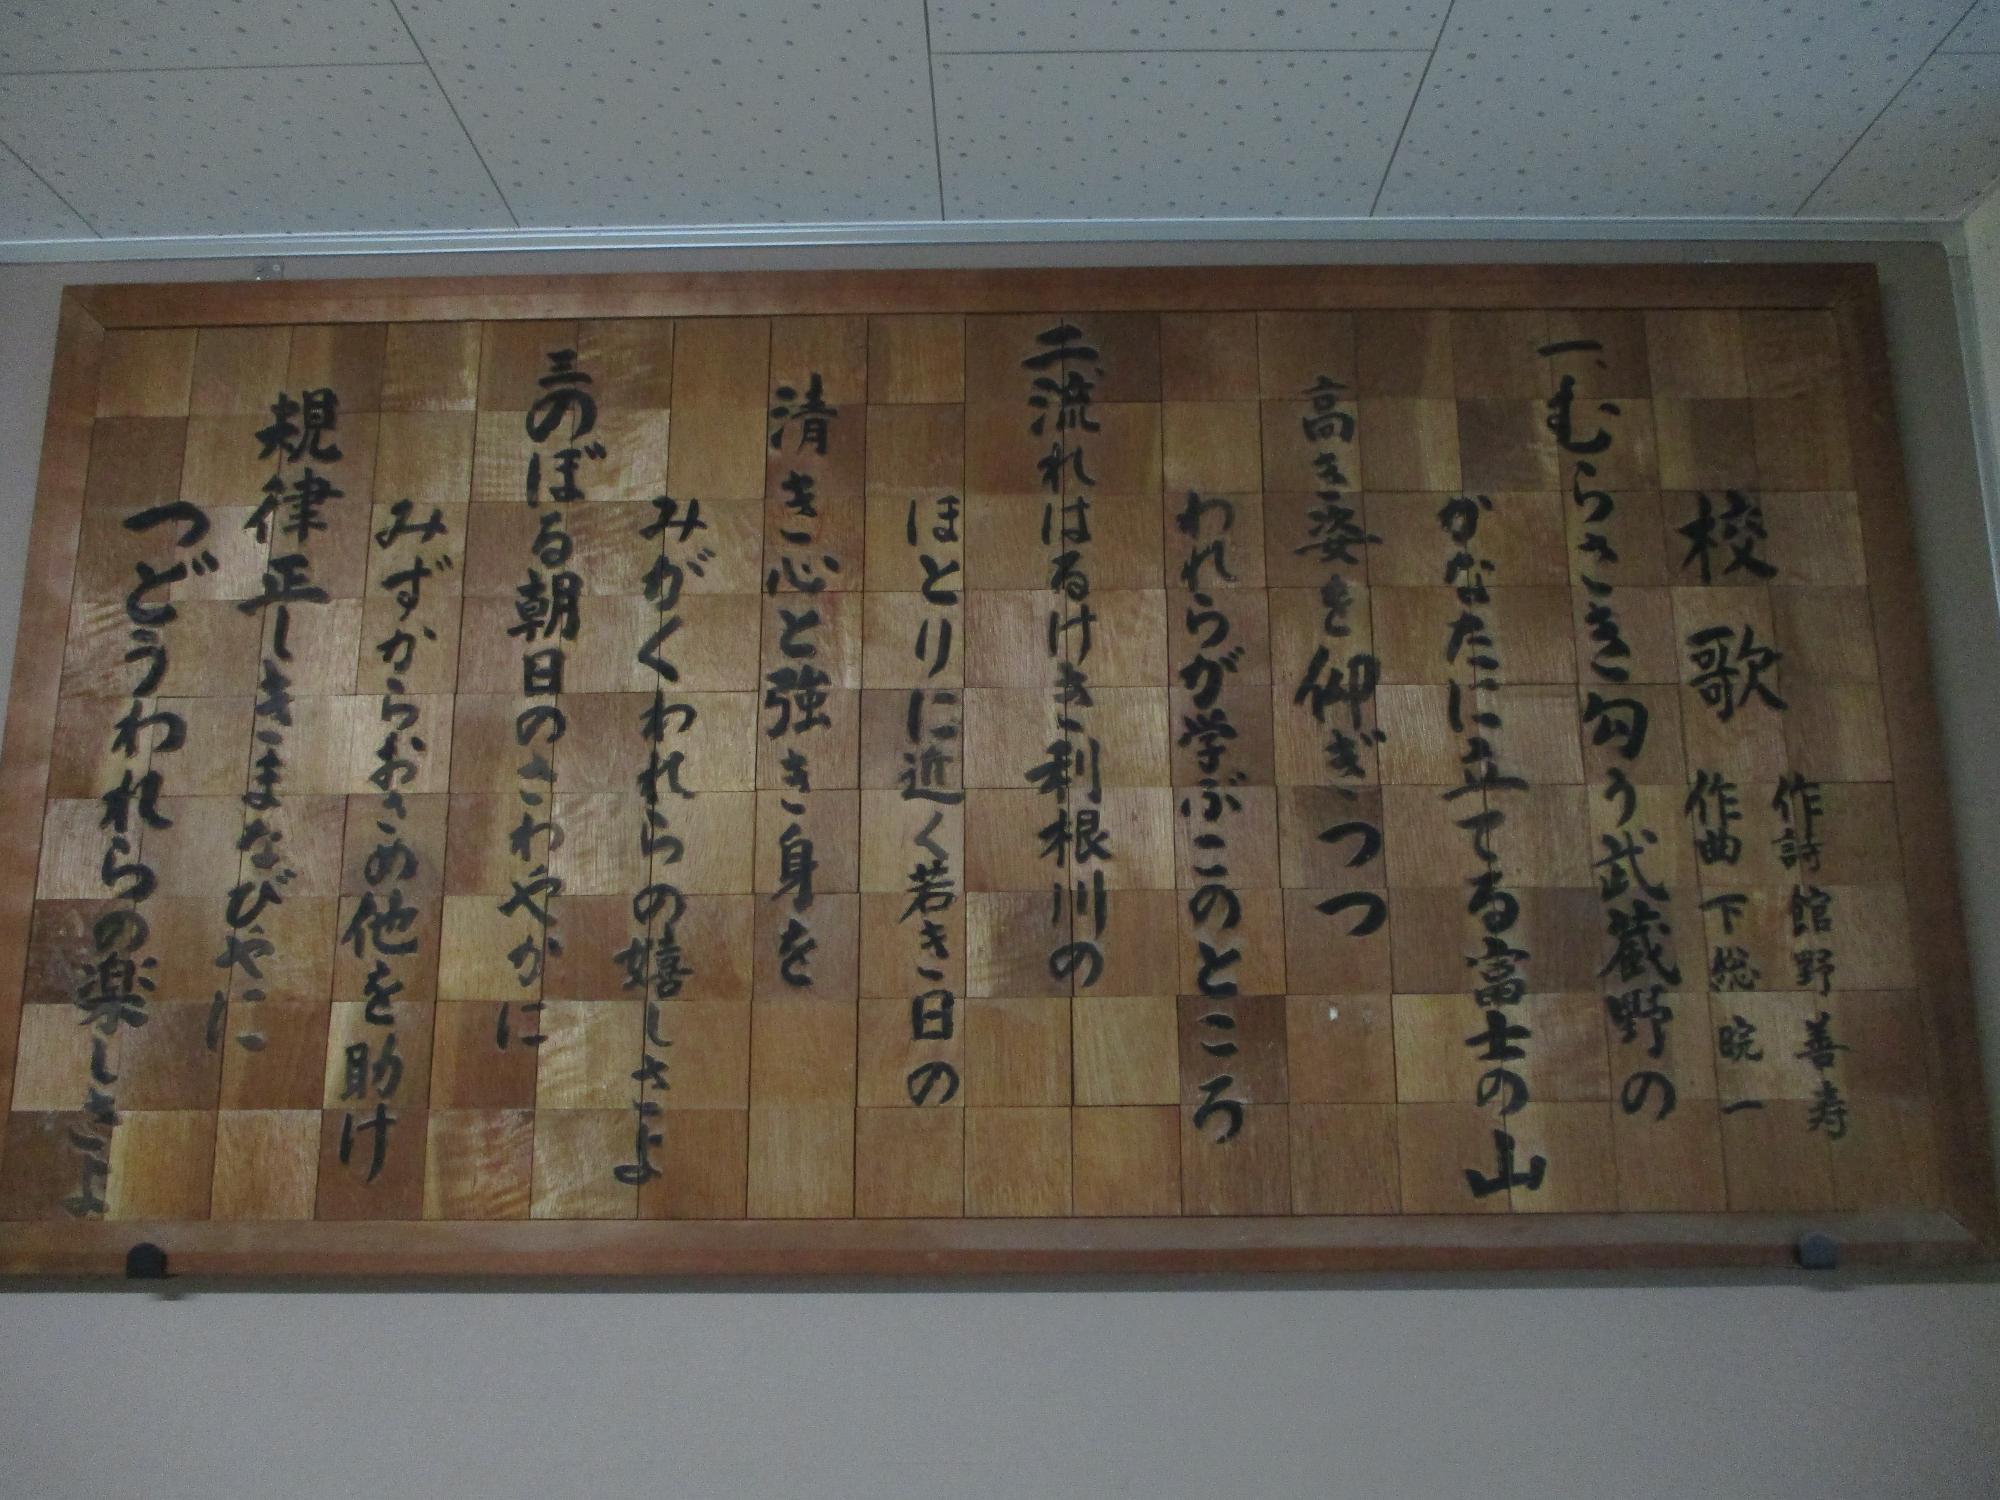 校歌
作詩 館野善寿
作曲 下総皖一
一、むらさき匂う武蔵野の
かなたに立てる富士の山
高き姿を仰ぎつつ
われらが学ぶこのところ
二、流れはるけき利根川の
ほとりに近く若き日の
清き心と強き身を
みがくわれらの嬉しさよ
三のぼる朝日のさわやかに
みずからおさめ他を助け
規律正しきまなびやに
つどうわれらの楽しさよ